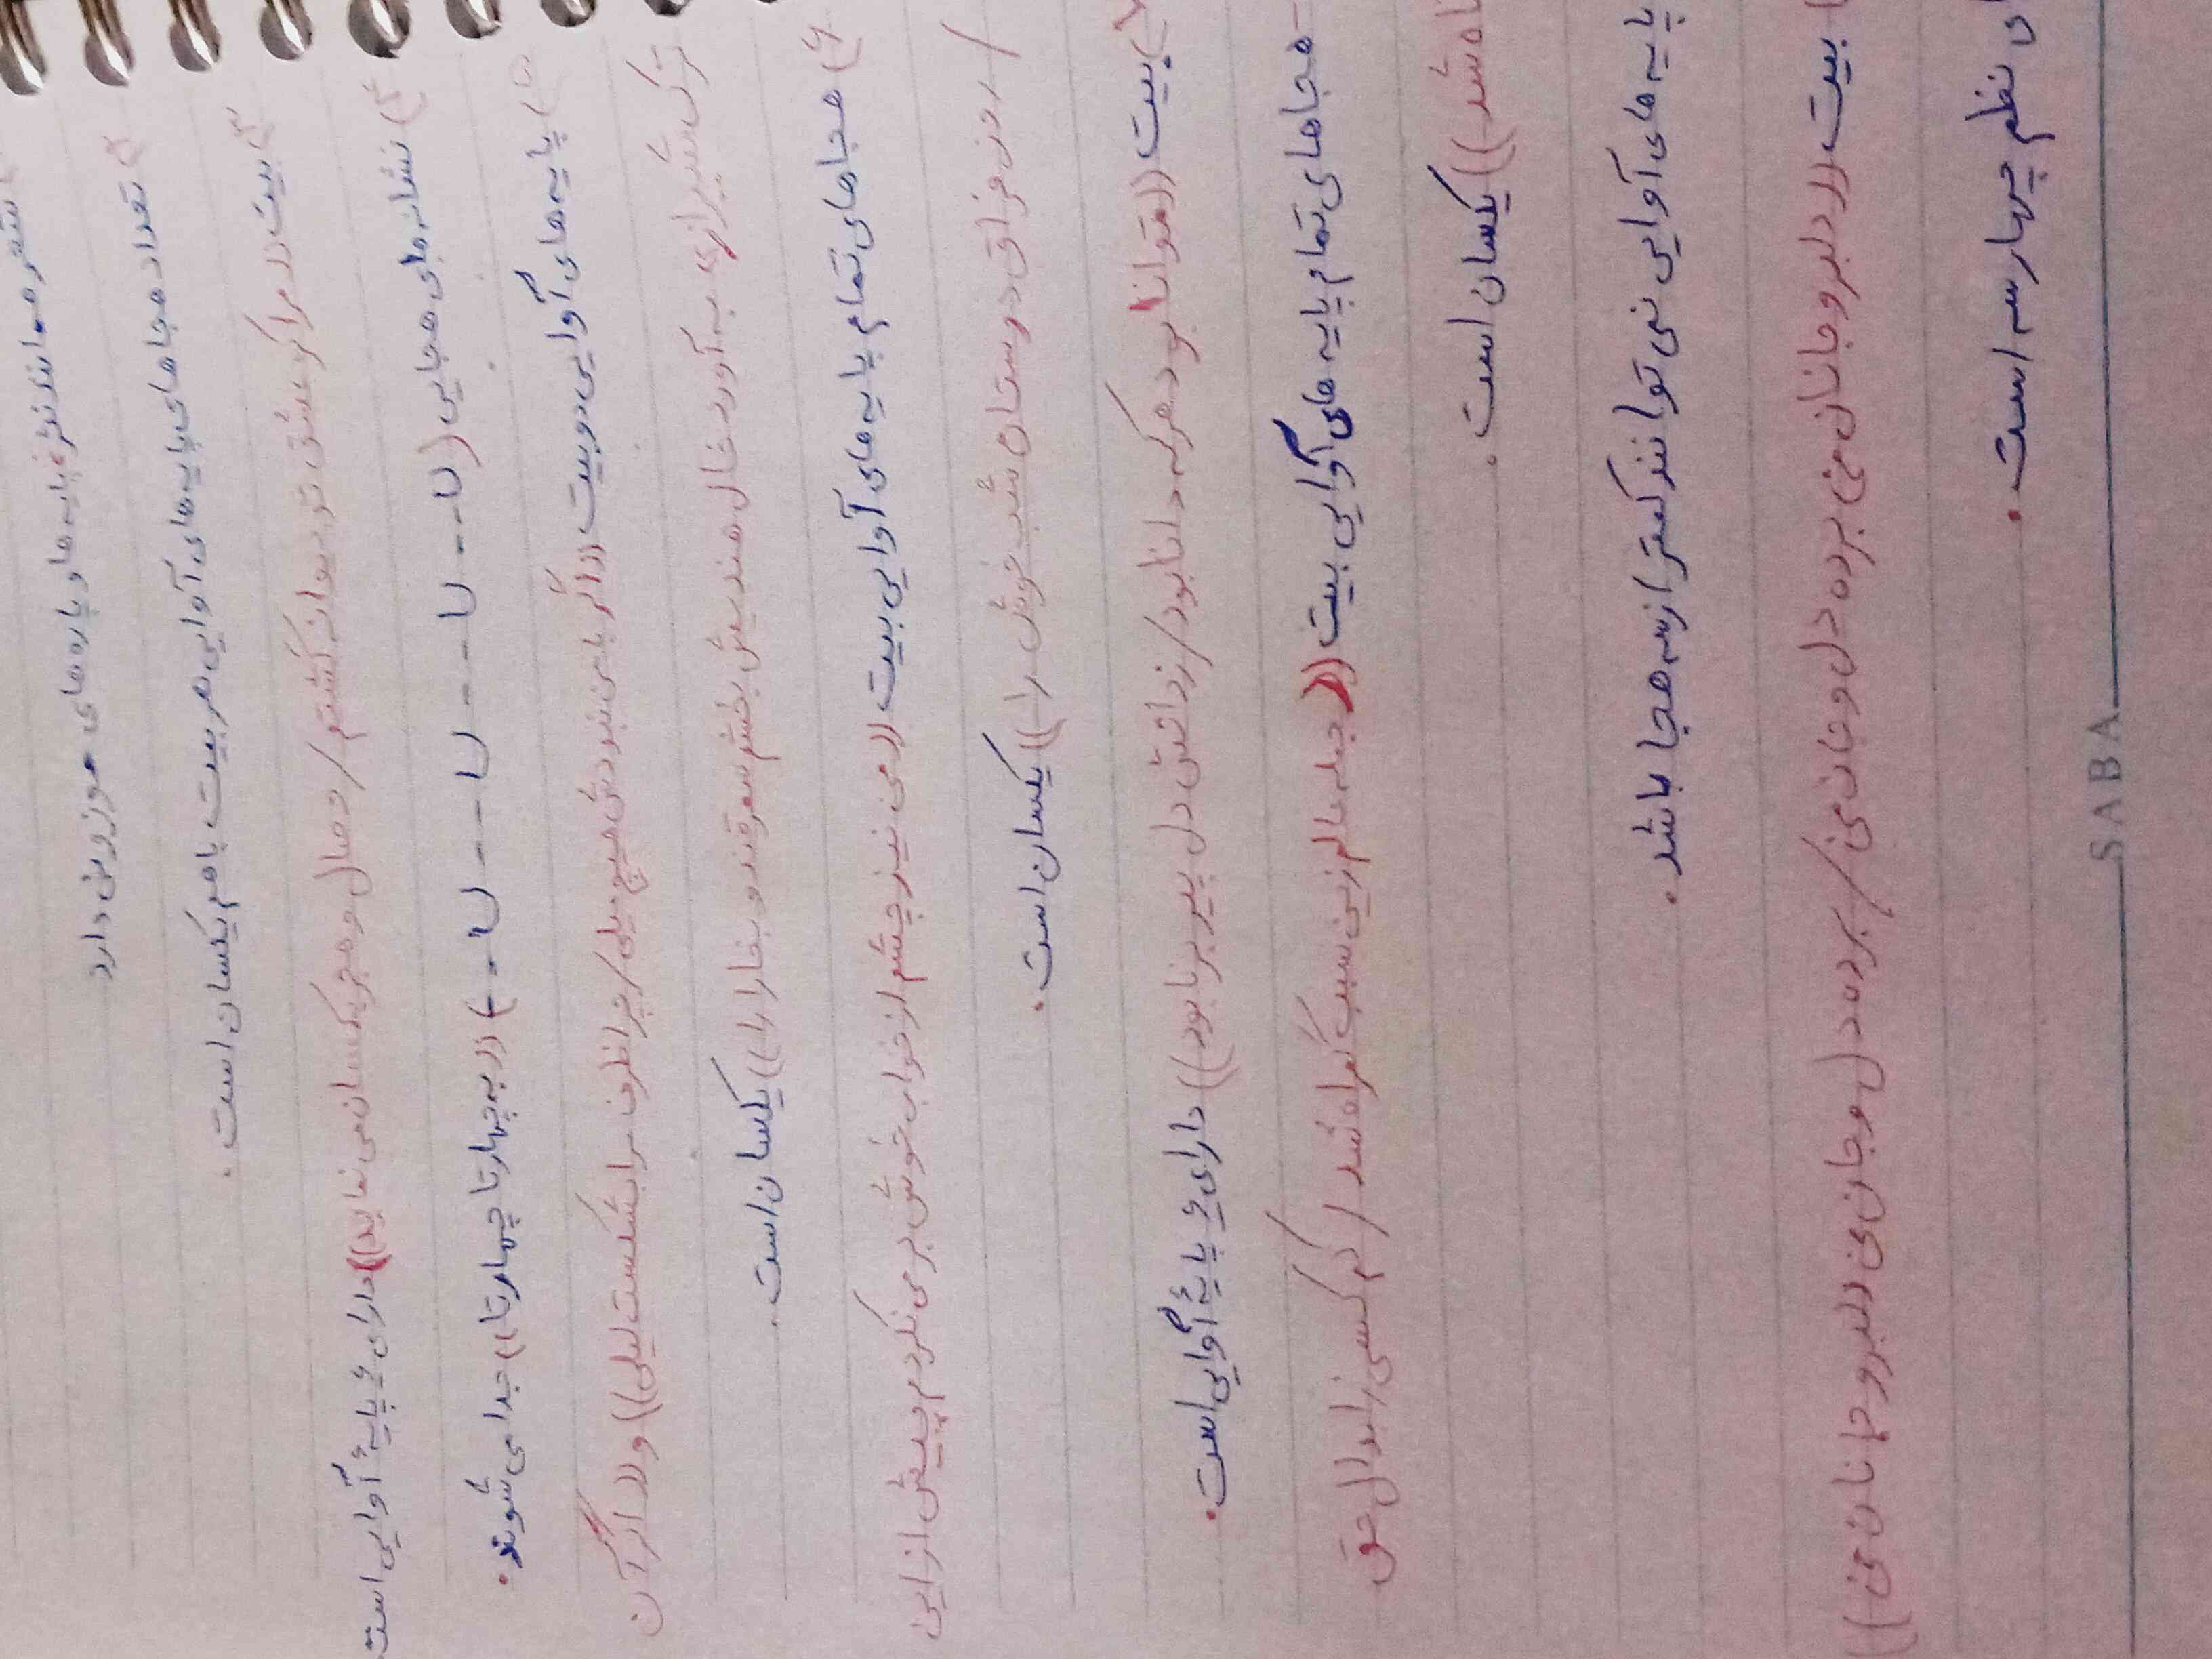 شعر همانند نثر پایه ها و پاره های موزونی دارد
تعداد هجاهای پایه های آوایی هر بیت باهم یکسان است.
بیت ((مرا کز عشق تو دیوانه گشتم / وصال و هجر یکسان می نماید)) دارای ۶ پایهٔ آوایی است
۴) نشانه های هجایی (U--U---U---U--U--) ((به چهارتا چهارتا)) جدا می شوند.
۵) پایه های آوایی دو بیت ((اگر با من نبودش هیچ میلی / چرا ظرف مرا بشکست لیلی)) و ((اگر آن
ترک شیرازی به آورد خال هندیش بخشم سمرقند و بخارا را)) یکسان است.
۶) هجاهای تمام پایه های آوایی بیت ((می نیزد چشم از خواب خوش بر می نکردم پیش از این
/ روز فراق دوستان شب خوش را)) یکسان است.
۷) بیت ((توانا بود هر که دانا بود / ز دانش دل پیر برنا بود)) دارای ۶ پایهٔ آوایی است.
هجاهای تمام پایه های آوایی بیت ((جمله عالم زین سبب گمراه شد / کم کسی ز ابدال حق
اه شد)) یکسان است.
پایه های آوایی نمی توانند کمتر از سه هجا باشد.
) بیت ((دلبر و جانان من برده دل و جان من / برده دل و جان من دلبر و جانان من))
ی نظم چهار سه است.
SABA